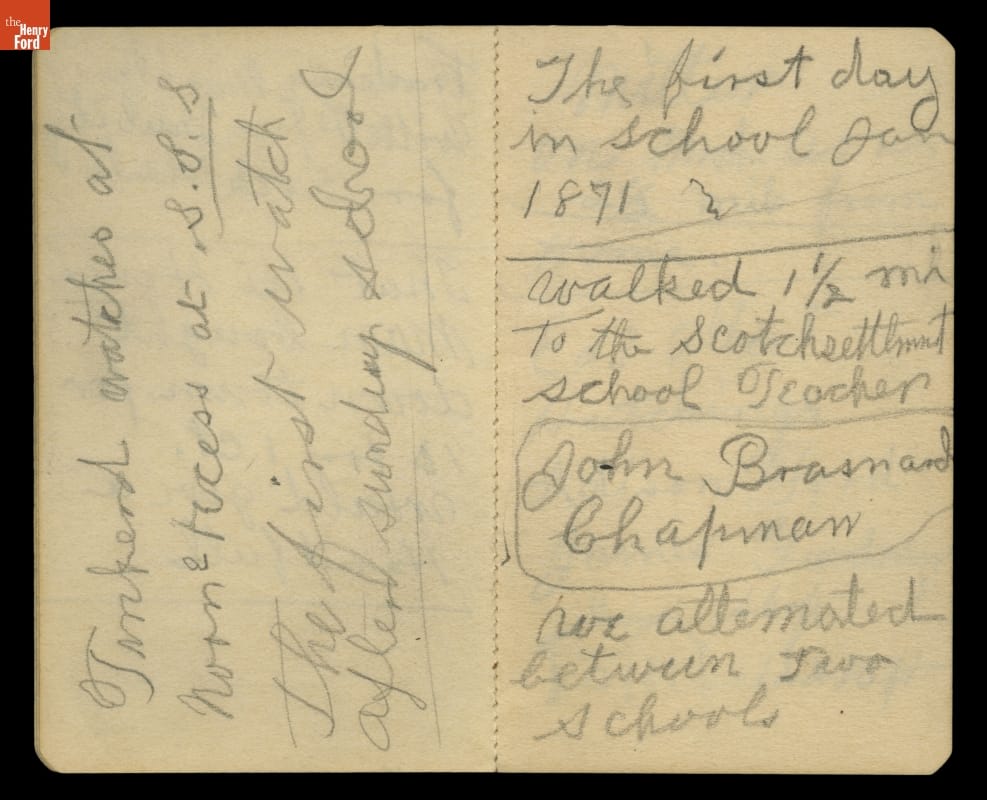 the
Henry
Ford
Tinkerd watches at
noon & recess at S.S.S
The first watch
after sunday school
The first day
in school Jan
1871
walked 1 1/2 mi
To the Scotchsettlment
school Teacher
John Brasnard
Chapman
we alternated
between Two
schools